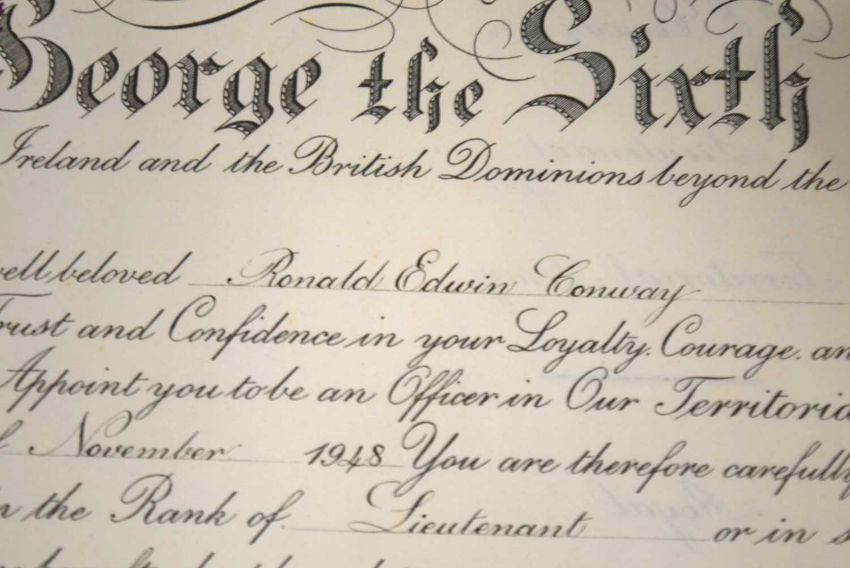 George the Sixth
Ireland and the British Dominions beyond the
well beloved Ronald Edwin Conway
Trust and Confidence in your Loyalty, Courage, an
Appoint you to be an Officer in Our Territoria
November 1948 You are therefore carefully
the Rank of Lieutenant or in s